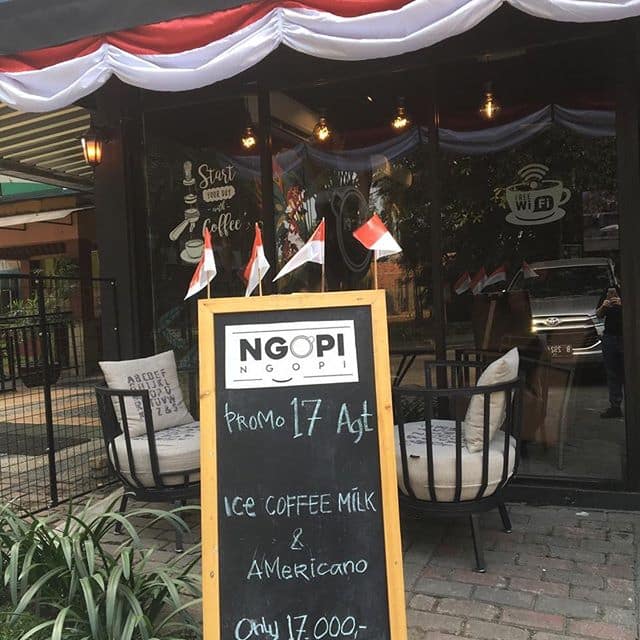 Start
YOUR DAY
with
Coffee
WiFi
NGOPI
NGOPI
PROMO 17 Agt
ICE COFFEE MILK
&
AMERICANO
Only 17.000,-
ABCDEF